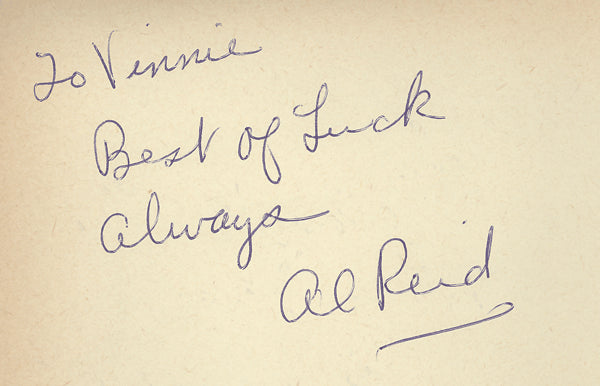 To Vinnie
Best of Luck
Always
Al Reid